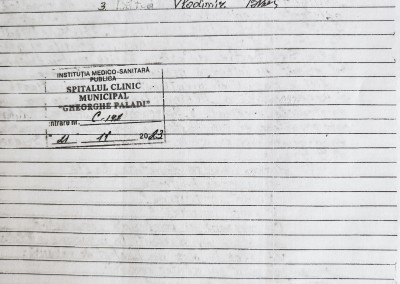 3 Vladimir
INSTITUȚIA MEDICO-SANITARĂ
PUBLICĂ
SPITALUL CLINIC
MUNICIPAL
"GHEORGHE PALADI"
Intrare nr. C-198
" 21 " 2023